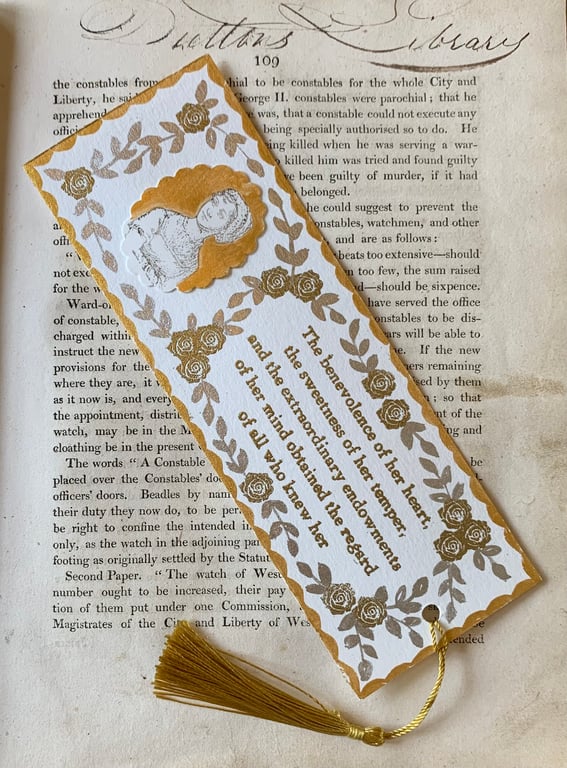 Suttons Library
109
the constables from hial to be constables for the whole City and
Liberty, he said George II. constables were parochial; that he
apprehend was, that a constable could not execute any
offic being specially authorised so to do. He
ing killed when he was serving a war-
killed him was tried and found guilty
ve been guilty of murder, if it had
belonged.
he could suggest to prevent the
constables, watchmen, and other
offi and are as follows:
beats too extensive—should
not exc n too few, the sum raised
for the w d—should be sixpence.
Ward- have served the office
of constable, onstables to be dis-
charged within ars will be able to
instruct the new e. If the new
provisions for the ers remaining
where they are, it sed by them
as it now is, and every ; so that
the appointment, distri nt of the
watch, may be in the M ng and
cloathing be in the present
The words “A Constable be
placed over the Constables' do
officers' doors. Beadles by nam
their duty they now do, to be per
be right to confine the intended in
only, as the watch in the adjoining par
footing as originally settled by the Statut
Second Paper. “The watch of West
number ought to be increased, their pay
tion of them put under one Commission,
Magistrates of the City and Liberty of Wes
ended
The benevolence of her heart,
the sweetness of her temper,
and the extraordinary endowments
of her mind obtained the regard
of all who knew her